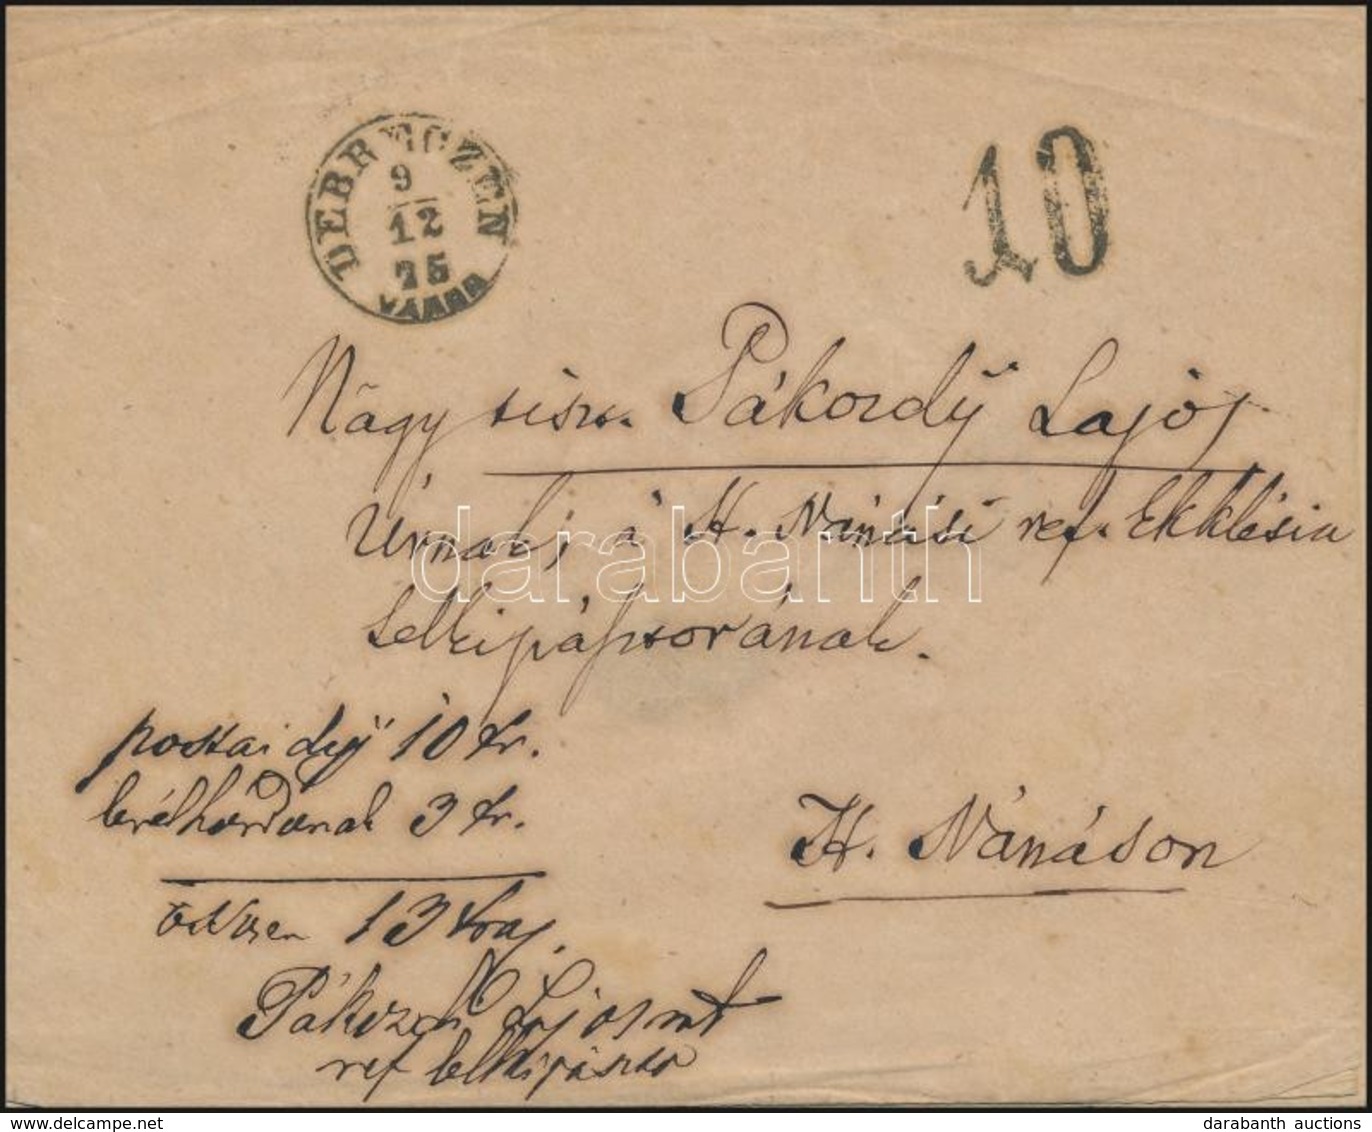 DEBRECZEN
9
12
75
VÁROS
10
Nagy tisz. Pákozdÿ Lajos
Úrnak, a H. Nánási ref. Ekklésia
lelkipásztorának.
darabanth
postai díj 10 kr.
levélhordónak 3 kr.
H. Nánáson
összesen 13 kraj.
Lajos mk
ref lelkipásztor
delcampe.net
darabanth auctions